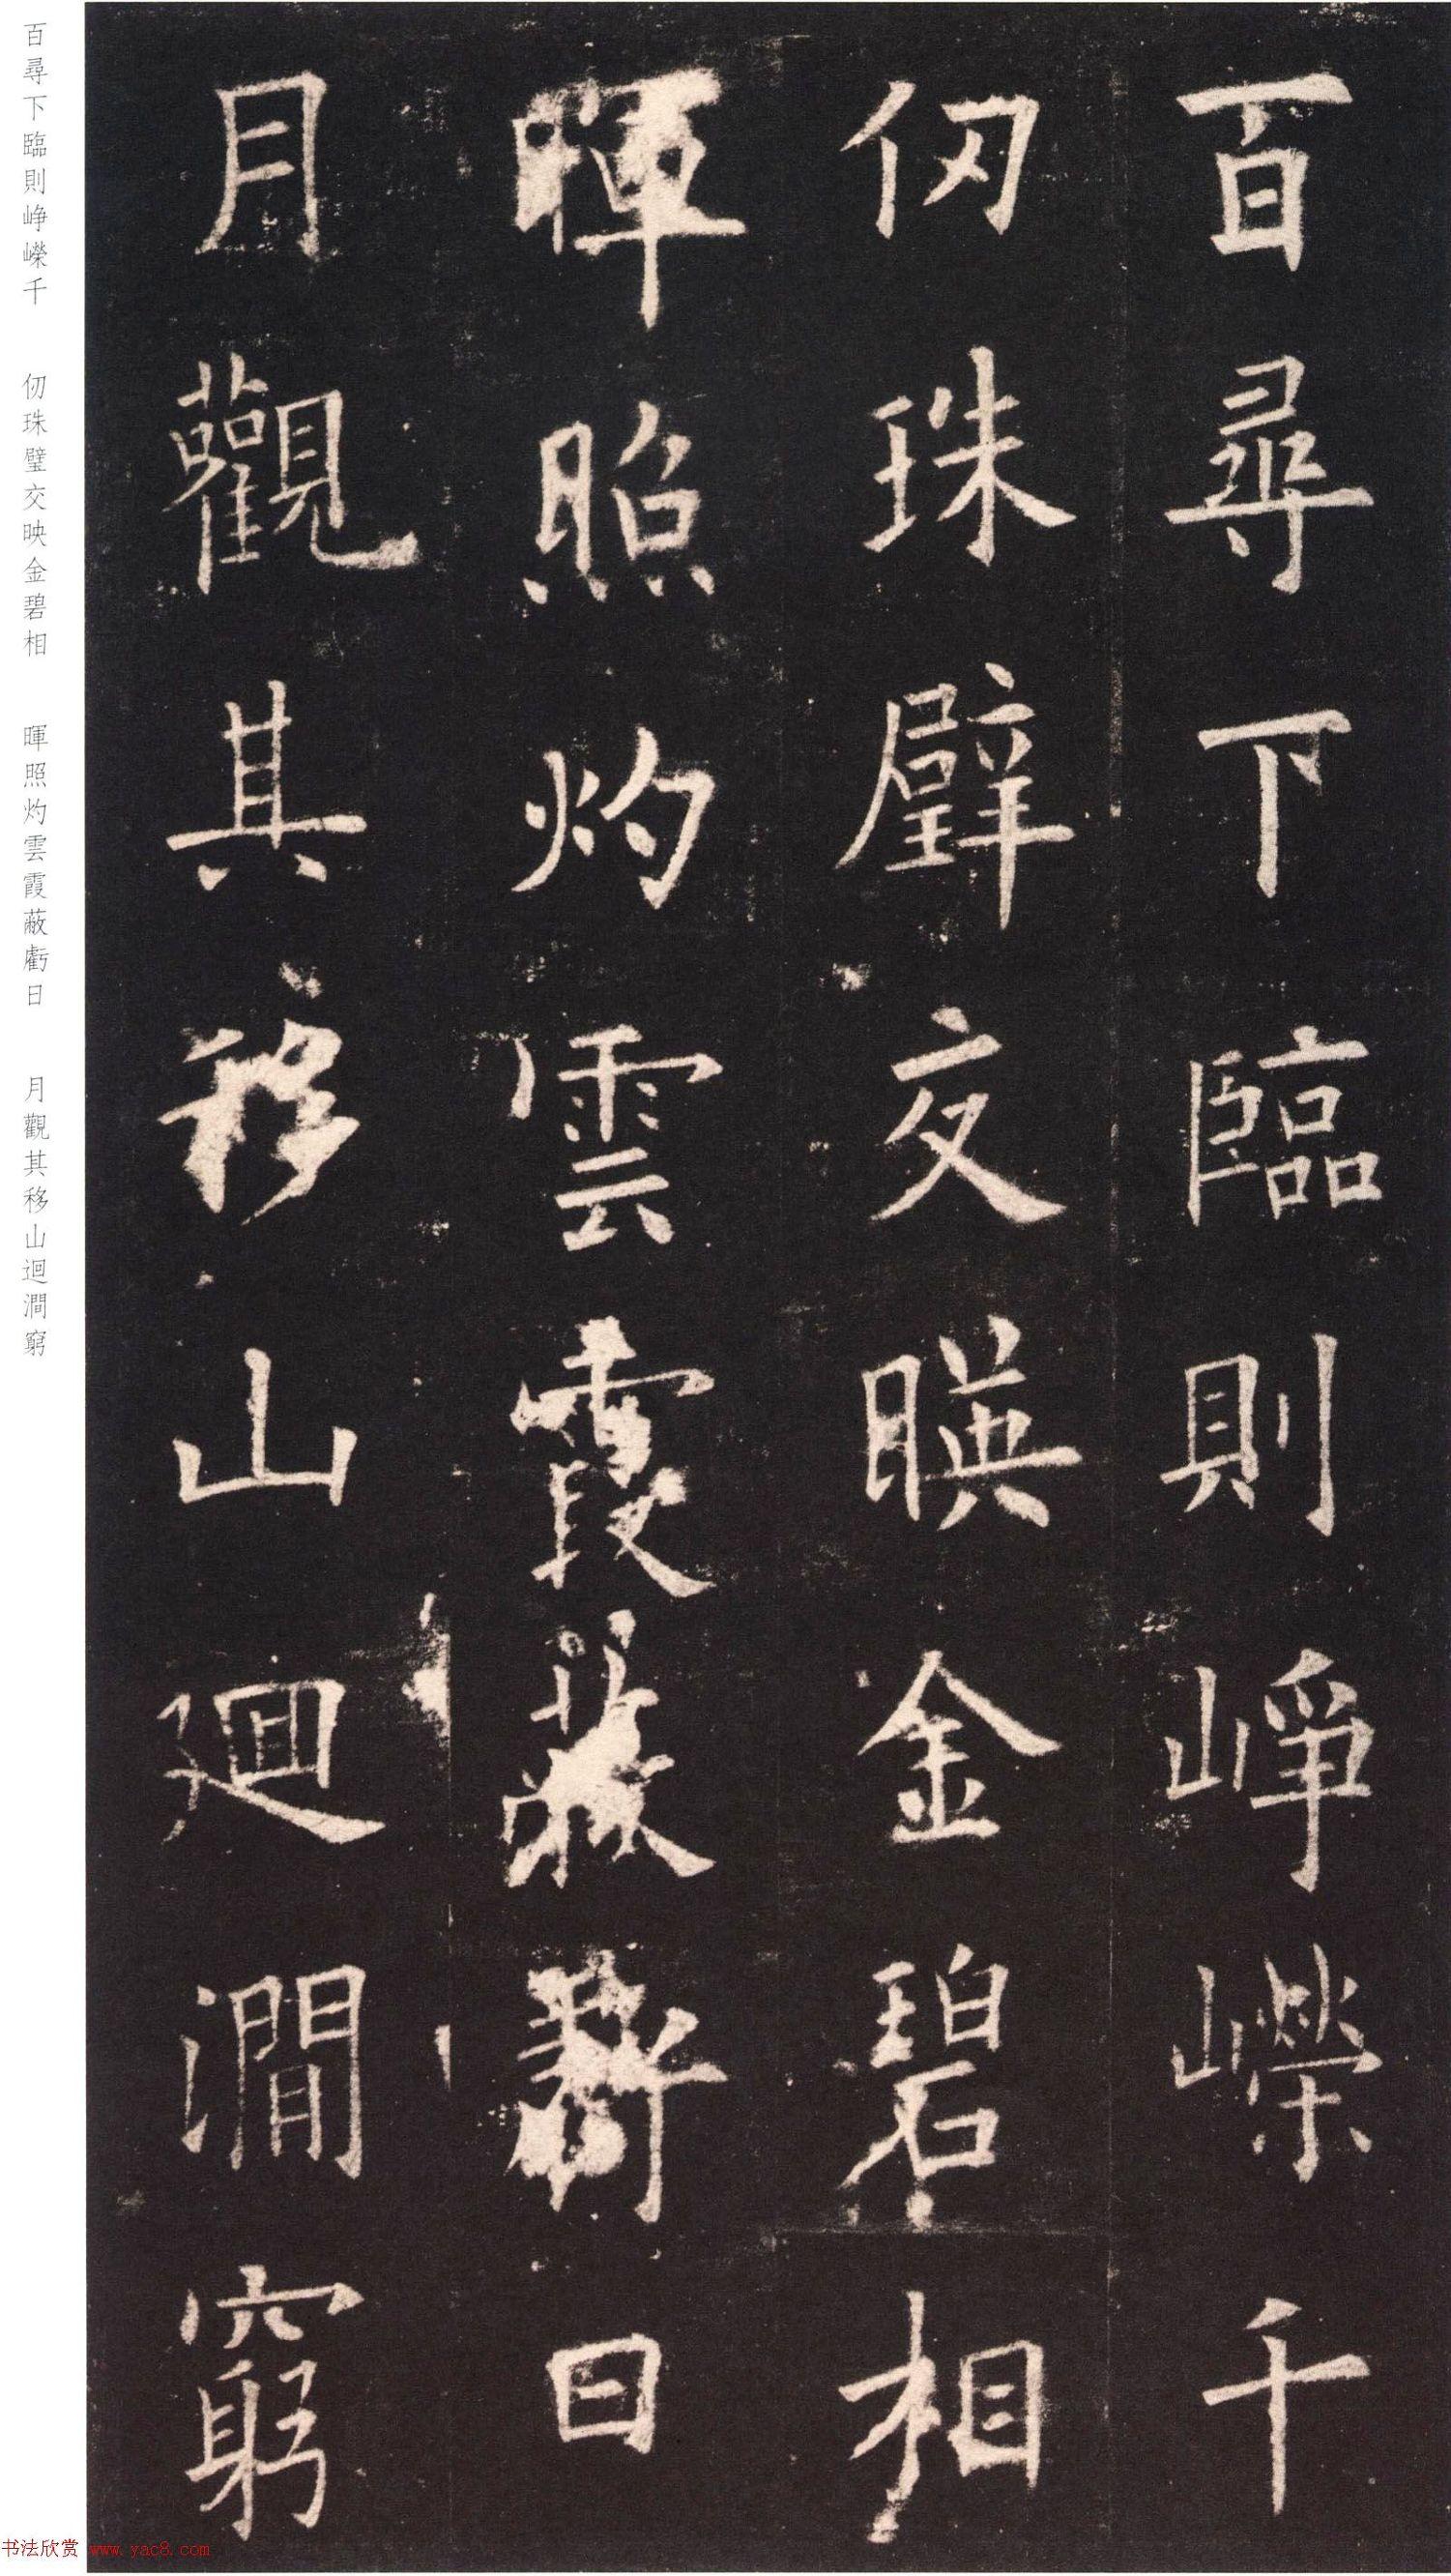 百尋下臨則崢嶸千
仞珠璧交暎金碧相
暉照灼雲霞蔽虧日
月觀其移山迴澗窮
百尋下臨則崢嶸千 仞珠璧交映金碧相 暉照灼雲霞蔽虧日 月觀其移山迴澗窮
书法欣赏 www.yac8.com